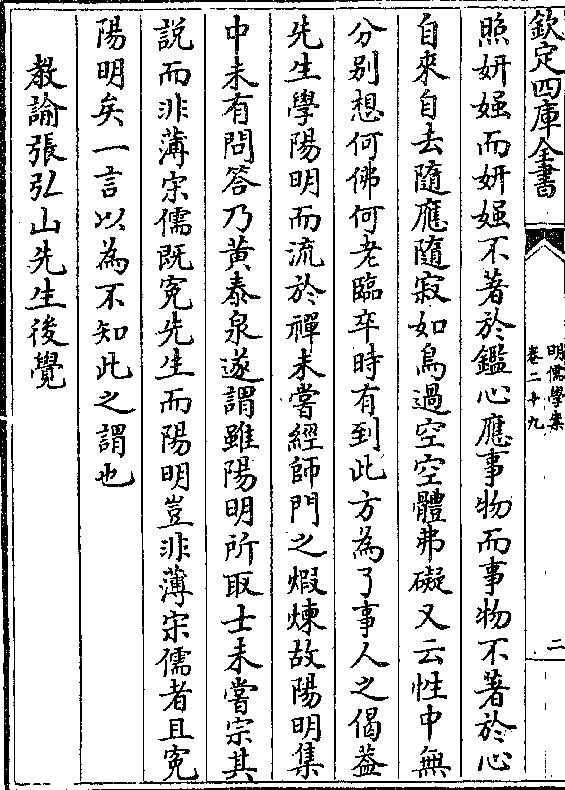 欽定四庫全書
明儒學案
卷二十九
二
照妍媸而妍媸不著於鑑心應事物而事物不著於心
自來自去隨應隨寂如鳥過空空體弗礙又云性中無
分別想何佛何老臨卒時有到此方為了事人之偈葢
先生學陽明而流於禪未嘗經師門之煆煉故陽明集
中未有問答乃黃泰泉遂謂雖陽明所取士未嘗宗其
說而非薄宗儒既寃先生而陽明豈非薄宗儒者且寃
陽明矣一言以為不知此之謂也
教諭張弘山先生後覺